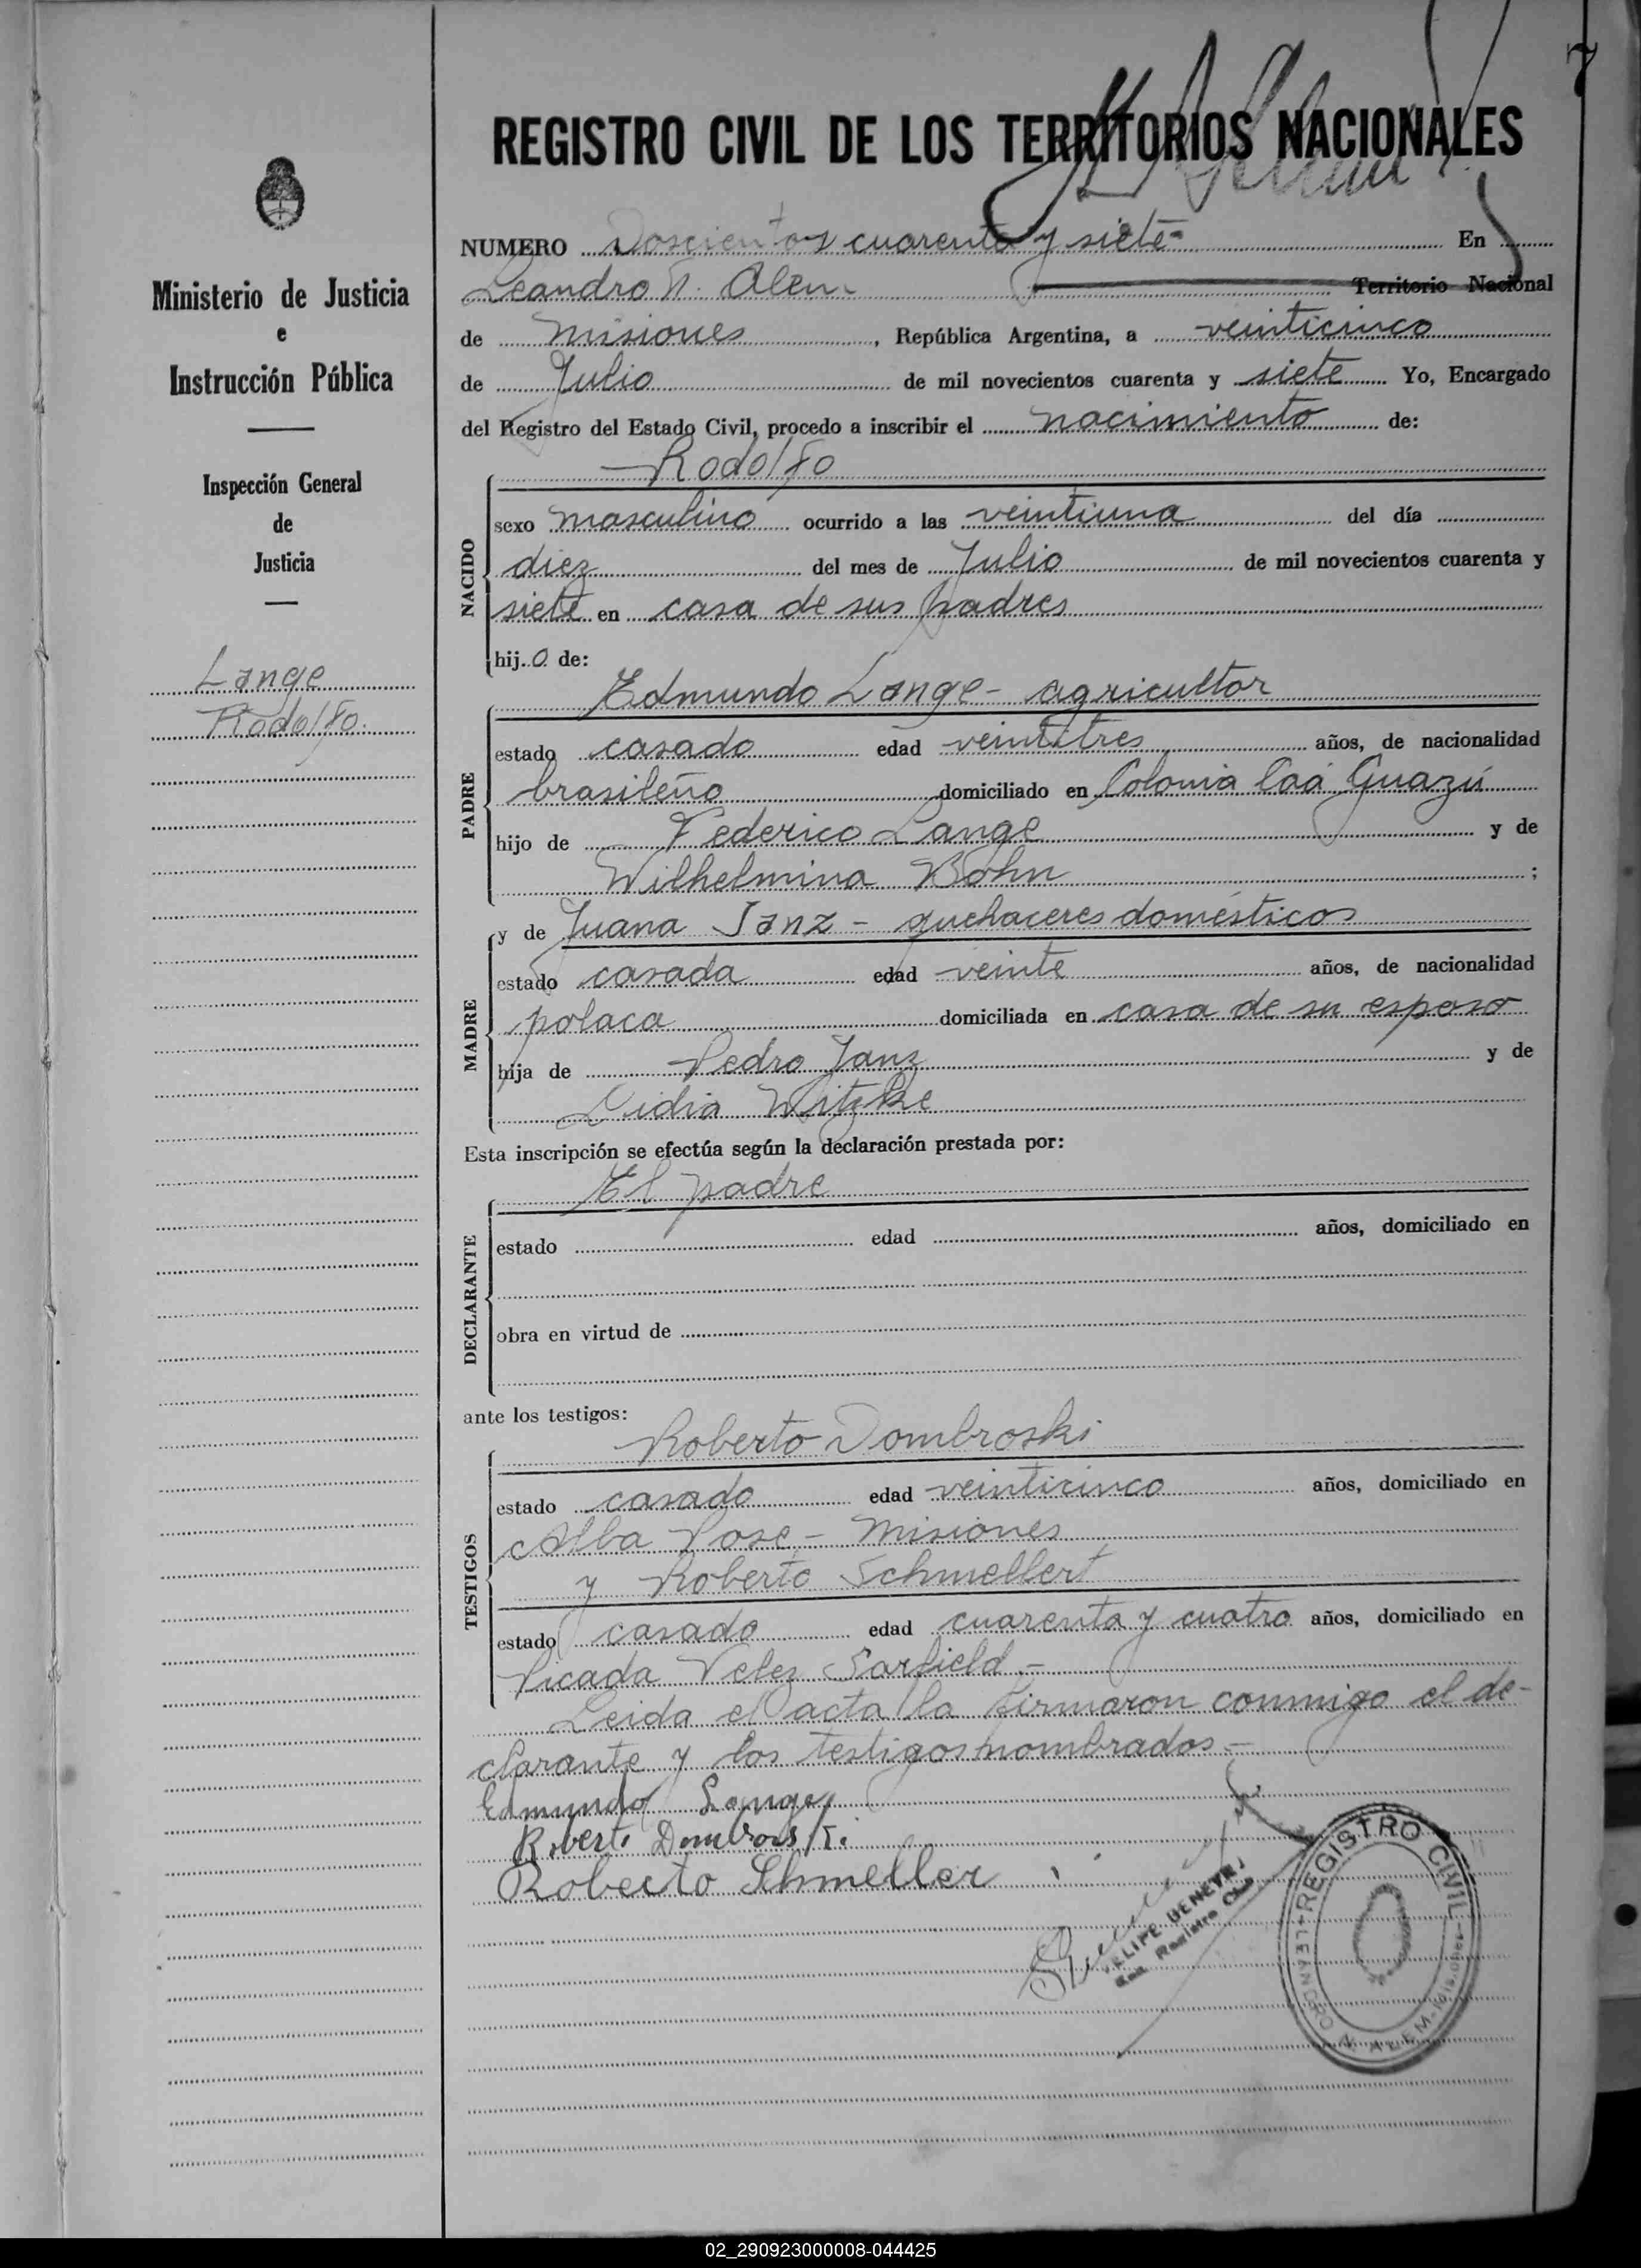 7
REGISTRO CIVIL DE LOS TERRITORIOS NACIONALES
Ministerio de Justicia
e
Instrucción Pública
Inspección General
de
Justicia
Lange
Rodolfo.
NUMERO Doscientos cuarenta y siete- En
Leandro N. Alem Territorio Nacional
de Misiones, República Argentina, a veinticinco
de Julio de mil novecientos cuarenta y siete Yo, Encargado
del Registro del Estado Civil, procedo a inscribir el nacimiento de:
Rodolfo
NACIDO
sexo masculino ocurrido a las veintiuna del día
diez del mes de Julio de mil novecientos cuarenta y
siete en casa de sus padres
hijo de:
Edmundo Lange - agricultor
PADRE
estado casado edad veintitres años, de nacionalidad
brasileño domiciliado en Colonia Caá Guazú
hijo de Federico Lange y de
Wilhelmina Böhn ;
y de Juana Janz - quehaceres domésticos
MADRE
estado casada edad veinte años, de nacionalidad
polaca domiciliada en casa de su esposo
hija de Pedro Janz y de
Lidia Witzke
Esta inscripción se efectúa según la declaración prestada por:
El padre
DECLARANTE
estado edad años, domiciliado en
obra en virtud de
ante los testigos:
Roberto Dombroski
TESTIGOS
estado casado edad veinticinco años, domiciliado en
Alba Pose - Misiones
y Roberto Schmellert
estado casado edad cuarenta y cuatro años, domiciliado en
Picada Velez Sarfield.-
Leida el acta la firmaron conmigo el de-
clarante y los testigos nombrados.-
Edmundo Lange
Roberto Dombroski.
Roberto Schmeller
FELIPE BENEYRJ
Enc. Registro Civil
REGISTRO CIVIL
LEANDRO N. ALEM - Misiones
02_290923000008-044425